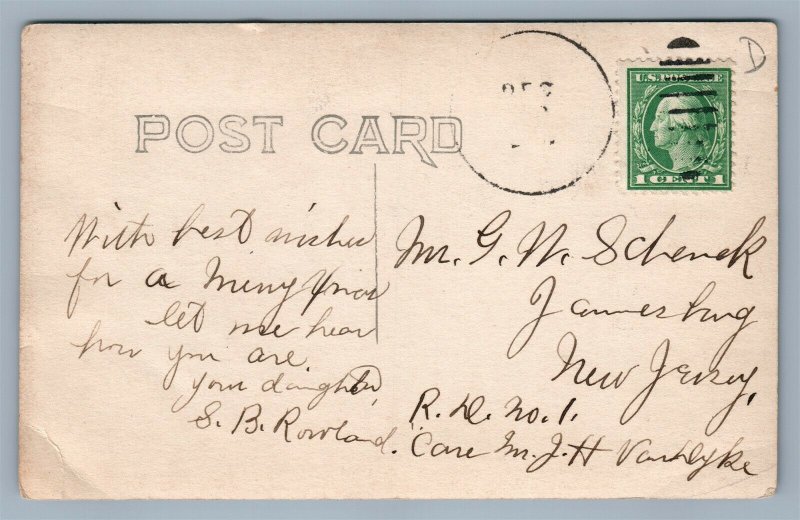 D
DEC
U.S. POSTAGE
1 CENT 1
POST CARD
With best wishes
for a Merry Xmas
let me hear
how you are.
your daughter,
S. B. Rowland.
Mr. G. W. Schenck
Jamesburg
New Jersey,
R. D. No. 1.
Care Mr. J. H Van Dyke